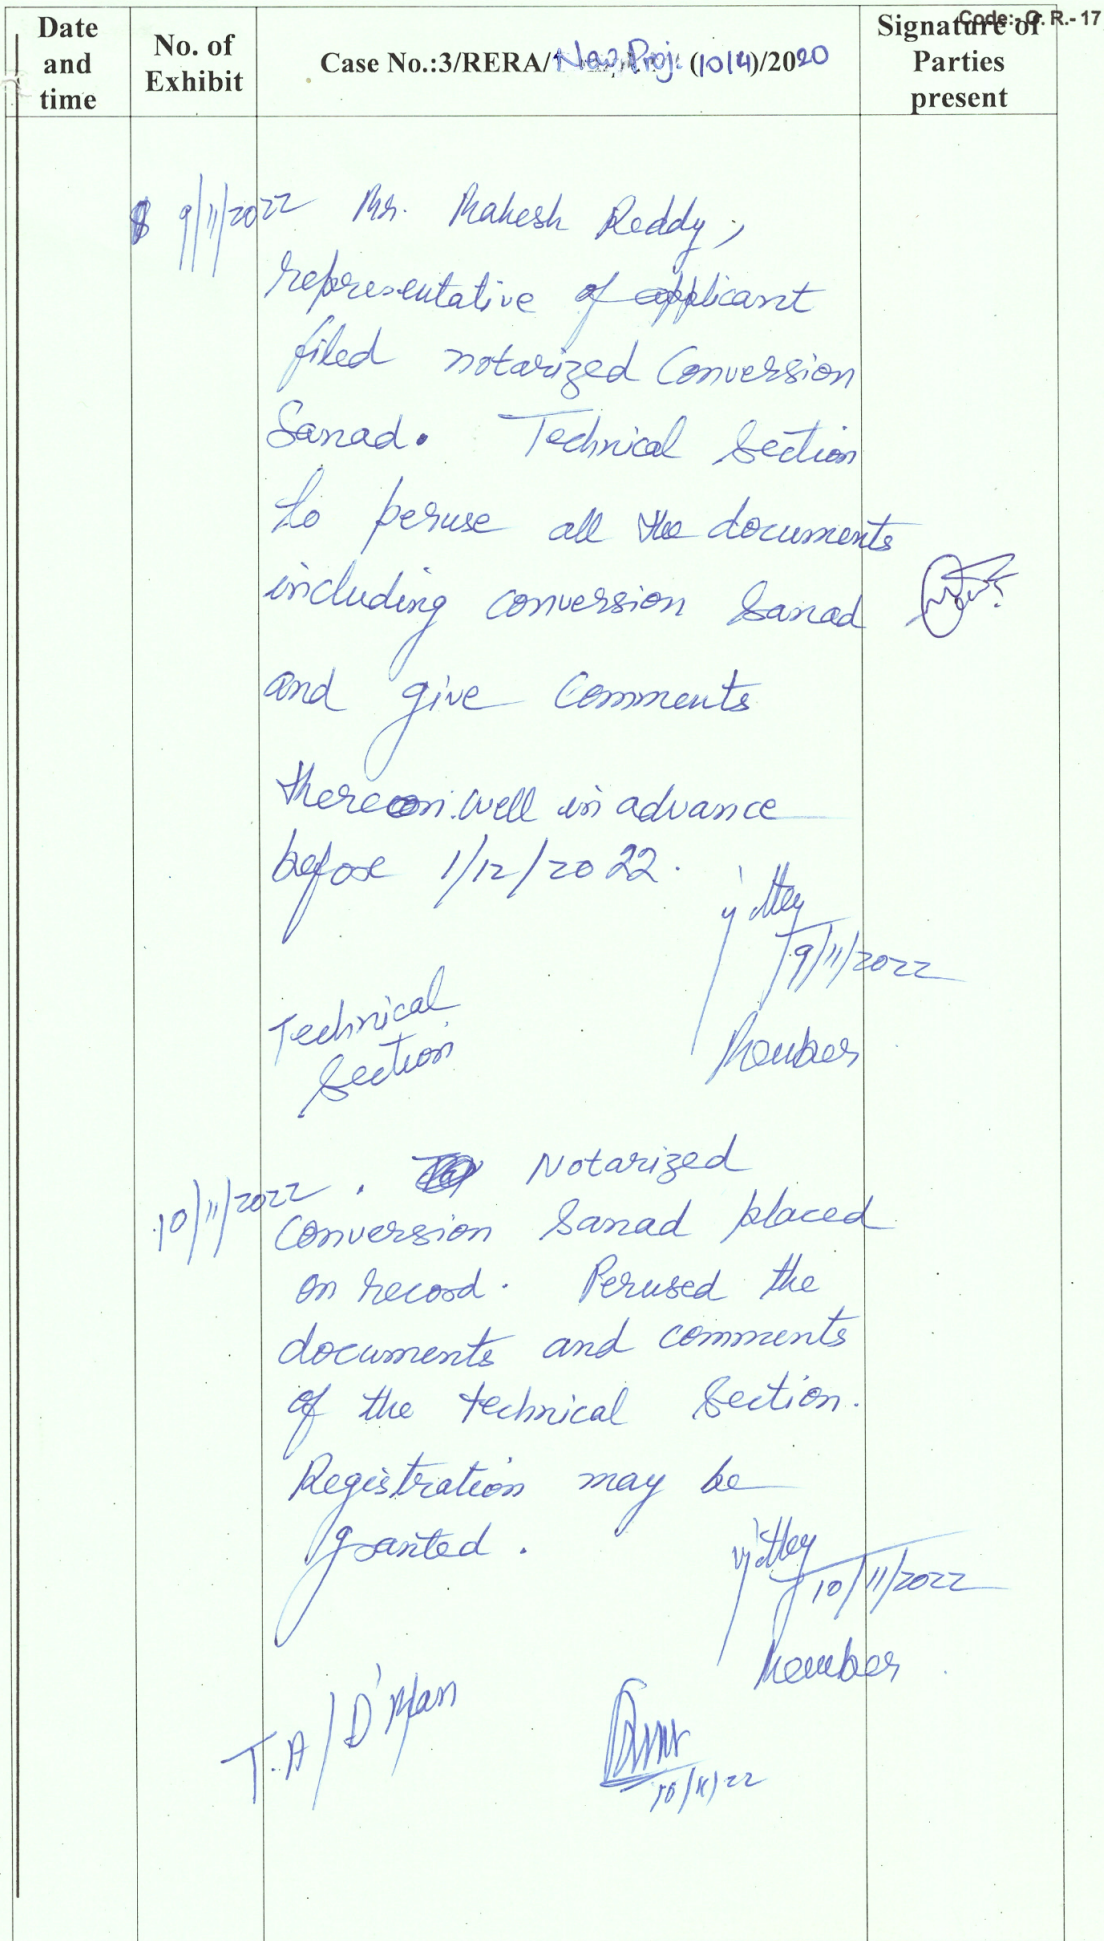 Code:- O. R.- 17
Date and time
No. of Exhibit
Case No.:3/RERA/New Proj. (1014)/2020
Signature of Parties present
9/11/2022 Mr. Mahesh Reddy,
representative of applicant
filed notarized Conversion
Sanad. Technical Section
to peruse all the documents
including conversion Sanad
and give Comments
thereon well in advance
before 1/12/2022.
9/11/2022
Member
Technical
Section
10/11/2022. Notarized
Conversion Sanad placed
on record. Perused the
documents and comments
of the technical Section.
Registration may be
granted.
10/11/2022
Member
T.A/D'Man
10/11/22